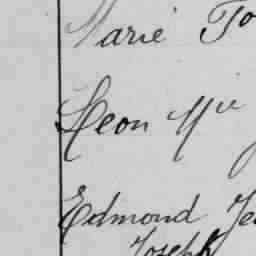 Marie Jo
Leon
Edmond Je
Joseph